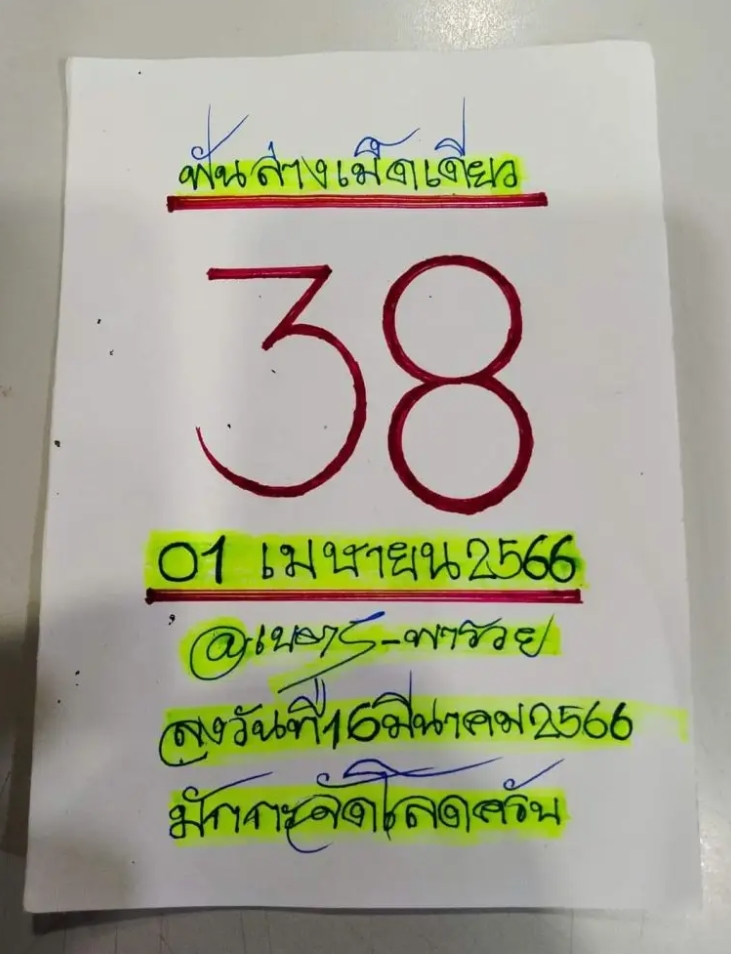 ฟันล่างเม็ดเดียว
38
01 เมษายน 2566
@เบตาร์-พารวย
ลงวันที่ 16 มีนาคม 2566
มักกะคัดโลดครับ